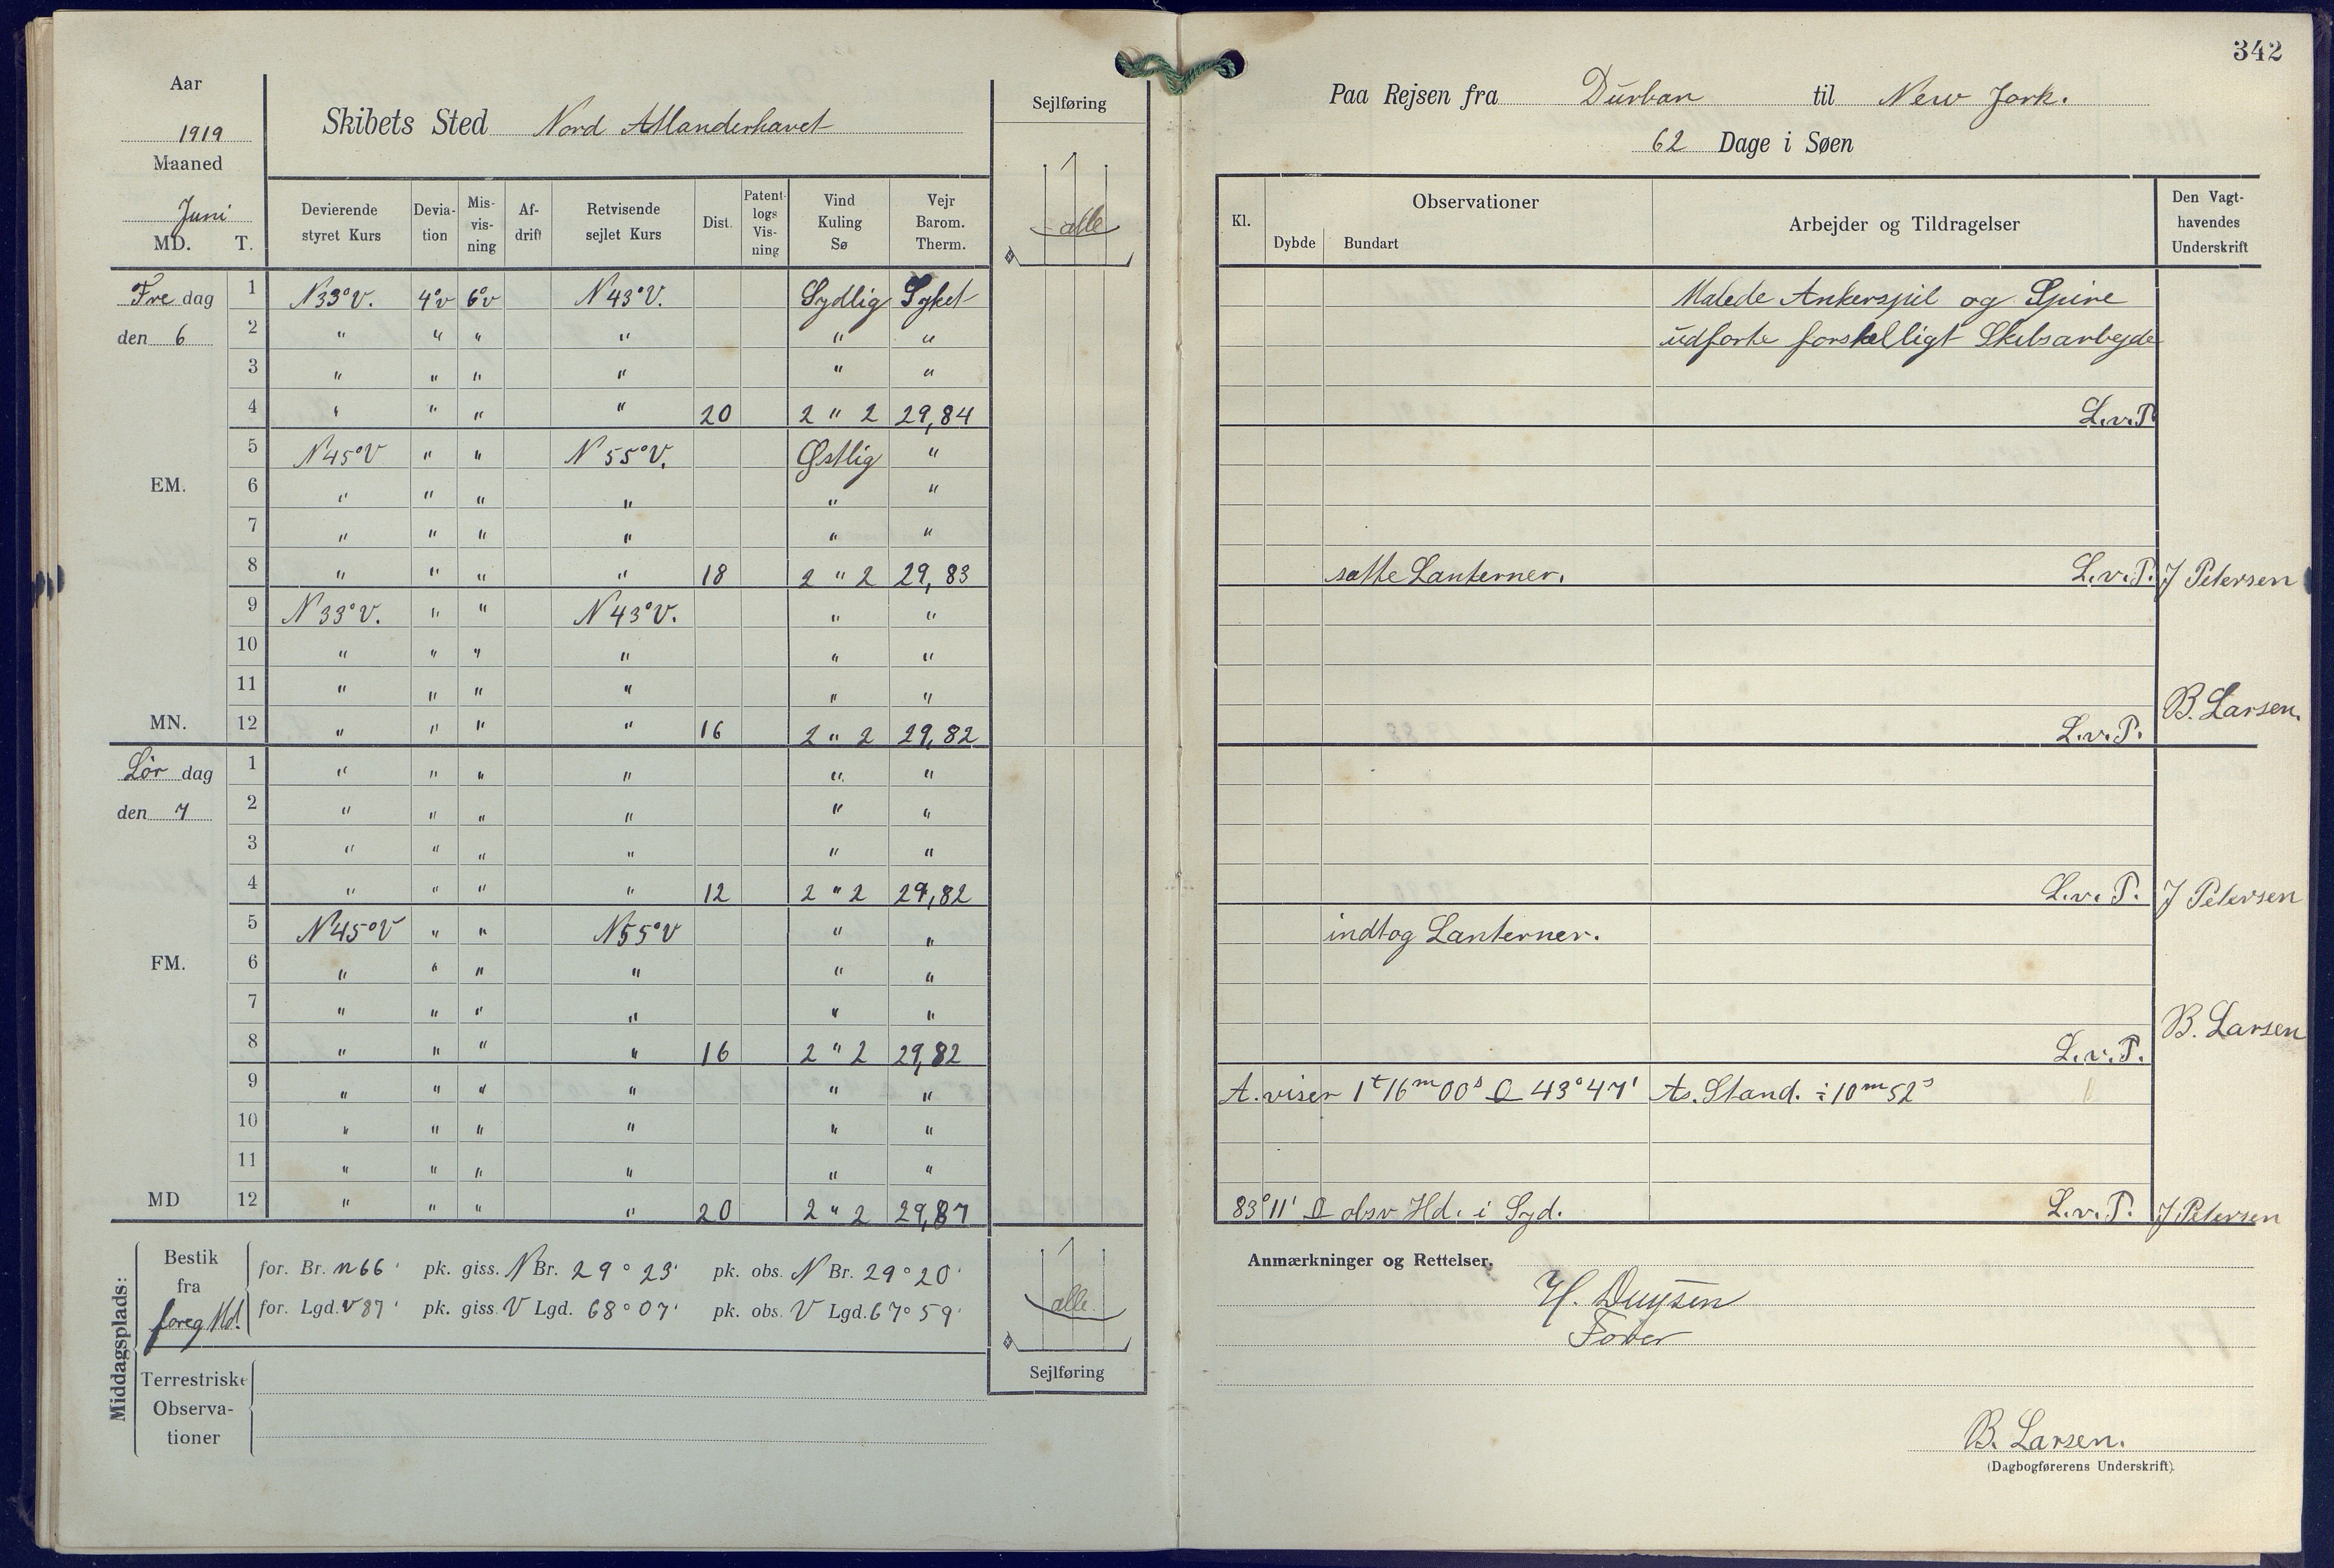 342
Aar
1919
Maaned
Juni
MD. T.
Skibets Sted Nord Atlanderhavet
Sejlføring
alle
Devierende styret Kurs
Devia- tion
Mis- vis- ning
Af- drift
Retvisende sejlet Kurs
Dist.
Patent- logs Vis- ning
Vind Kuling Sø
Vejr Barom. Therm.
Fre dag 1 N33°V. 4°v 6°v N43°V. Sydlig Syket
den 6 2 " " " " " "
3 " " " " " "
4 " " " " 20 2 " 2 29,84
5 N45°V " " N55°V. Østlig "
EM. 6 " " " " " "
7 " " " " " "
8 " " " " 18 2 " 2 29,83
9 N33°V. " " N43°V. " "
10 " " " " " "
11 " " " " " "
MN. 12 " " " " 16 2 " 2 29,82
Lör dag 1 " " " " " "
den 7 2 " " " " " "
3 " " " " " "
4 " " " " 12 2 " 2 29,82
5 N45°V " " N55°V " "
FM. 6 " " " " " "
7 " " " " " "
8 " " " " 16 2 " 2 29,82
9 " " " " " "
10 " " " " " "
11 " " " " " "
MD 12 " " " " 20 2 " 2 29,87
Middagsplads:
Bestik fra foreg Md.
for. Br. n 66' pk. giss. N Br. 29° 23' pk. obs. N Br. 29° 20'
for. Lgd. v 87' pk. giss. V Lgd. 68° 07' pk. obs. V Lgd. 67° 59'
Terrestriske Observa- tioner
alle.
Sejlføring
Paa Rejsen fra Durban til New Jork.
62 Dage i Søen
Kl.
Observationer
Dybde Bundart
Arbejder og Tildragelser
Den Vagt- havendes Underskrift
Malede Ankerspil og Spire
udforte forskelligt Skibsarbejde
L.v.P.
satte Lanterner. L.v.P. J Petersen
B. Larsen.
L.v.P.
L.v.P. J Petersen
indtog Lanterner.
B. Larsen
L.v.P.
A. viser 1t 16m 00s O 43°47' As. Stand. ÷ 10m 52s
83°11' O obsv Hd. i Syd. L.v.P. J Petersen
Anmærkninger og Rettelser.
H. Duysen
Fører
B. Larsen.
(Dagbogførerens Underskrift).